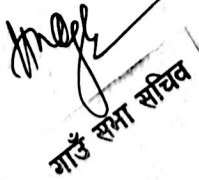 गाउँ सभा सचिव